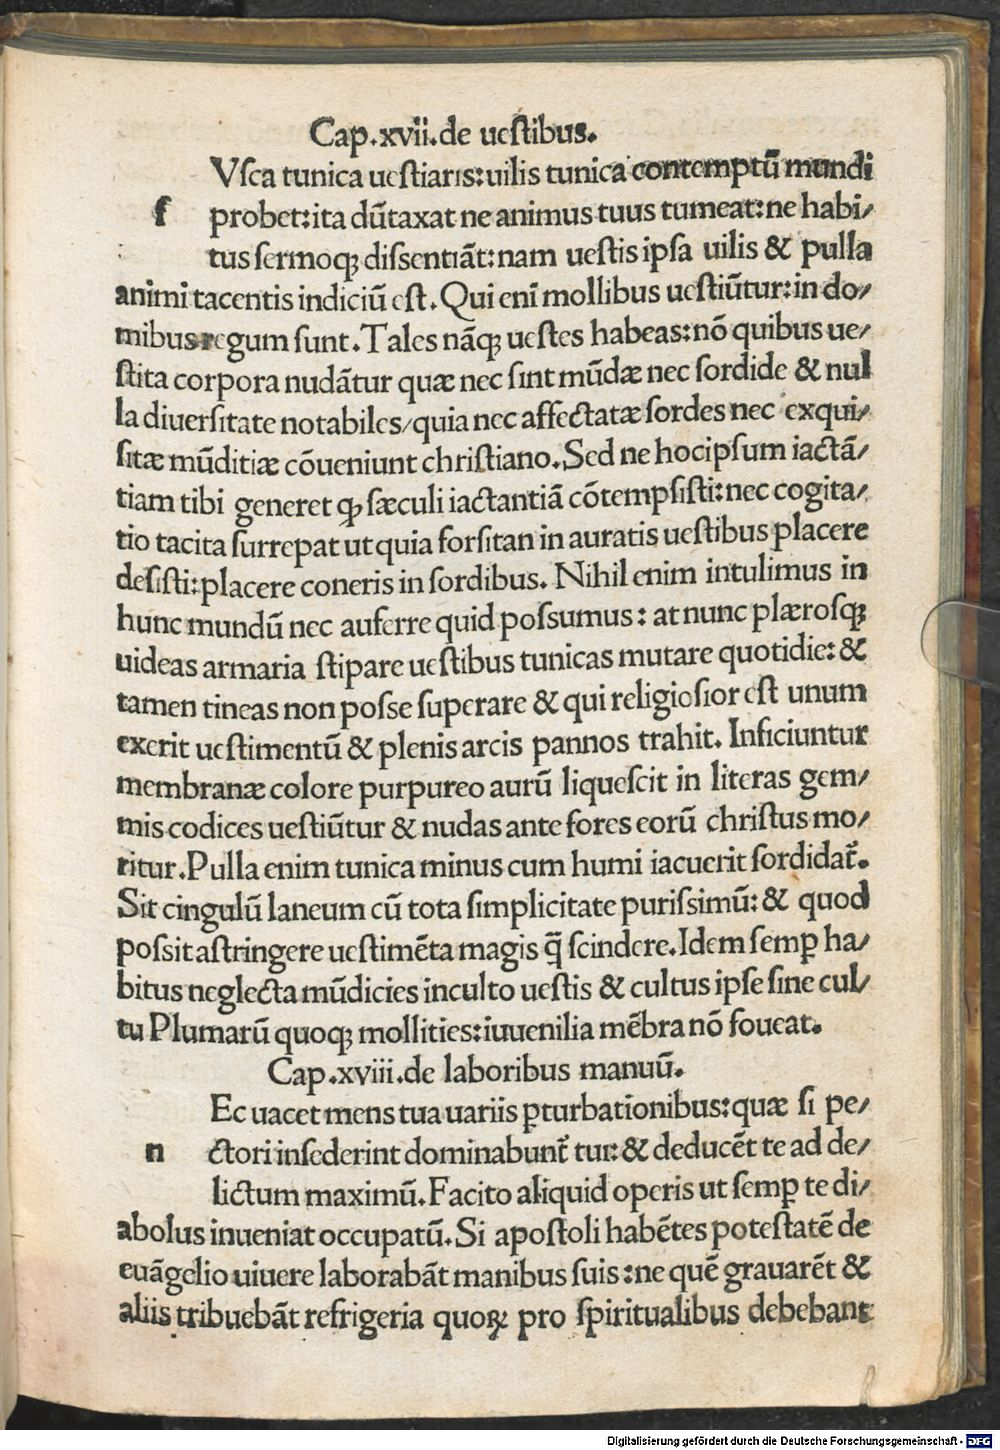 Cap.xvii.de ueſtibus.
Vſca tunica ueſtiaris:uilis tunica contemptū mundi
f probet:ita dūtaxat ne animus tuus tumeat:ne habi/
tus ſermoqꝫ diſſentiāt:nam ueſtis ipſa uilis & pulla
animi tacentis indiciū eſt.Qui enī mollibus ueſtiūtur:in do/
mibus regum ſunt.Tales nāqꝫ ueſtes habeas:nō quibus ue/
ſtita corpora nudātur quæ nec ſint mūdæ nec ſordide & nul
la diuerſitate notabiles/quia nec affectatæ ſordes nec exqui/
ſitæ mūditiæ cōueniunt chriſtiano.Sed ne hocipſum iactā/
tiam tibi generet ꝙ ſæculi iactantiā cōtempſiſti:nec cogita/
tio tacita ſurrepat ut quia forſitan in auratis ueſtibus placere
deſiſti:placere coneris in ſordibus. Nihil enim intulimus in
hunc mundū nec auferre quid poſſumus: at nunc plæroſqꝫ
uideas armaria ſtipare ueſtibus tunicas mutare quotidie: &
tamen tineas non poſſe ſuperare & qui religioſior eſt unum
exerit ueſtimentū & plenis arcis pannos trahit. Inficiuntur
membranæ colore purpureo aurū liqueſcit in literas gem/
mis codices ueſtiūtur & nudas ante fores eorū chriſtus mo/
ritur.Pulla enim tunica minus cum humi iacuerit ſordidat̄.
Sit cingulū laneum cū tota ſimplicitate puriſſimū:& quod
poſſit aſtringere ueſtimēta magis q̄ ſcindere.Idem ſemꝑ ha/
bitus neglecta mūdicies inculto ueſtis & cultus ipſe ſine cul/
tu Plumarū quoqꝫ mollities:iuuenilia mēbra nō foueat.
Cap.xviii.de laboribus manuū.
Ec uacet mens tua uariis ꝑturbationibus:quæ ſi pe/
n ctori inſederint dominabunt̄ tur:& deducēt te ad de/
lictum maximū.Facito aliquid operis ut ſemꝑ te di/
abolus inueniat occupatū.Si apoſtoli habētes poteſtatē de
euāgelio uiuere laborabāt manibus ſuis:ne quē grauarēt &
aliis tribuebāt refrigeria quoꝝ pro ſpiritualibus debebant
Digitalisierung gefördert durch die Deutsche Forschungsgemeinschaft - DFG